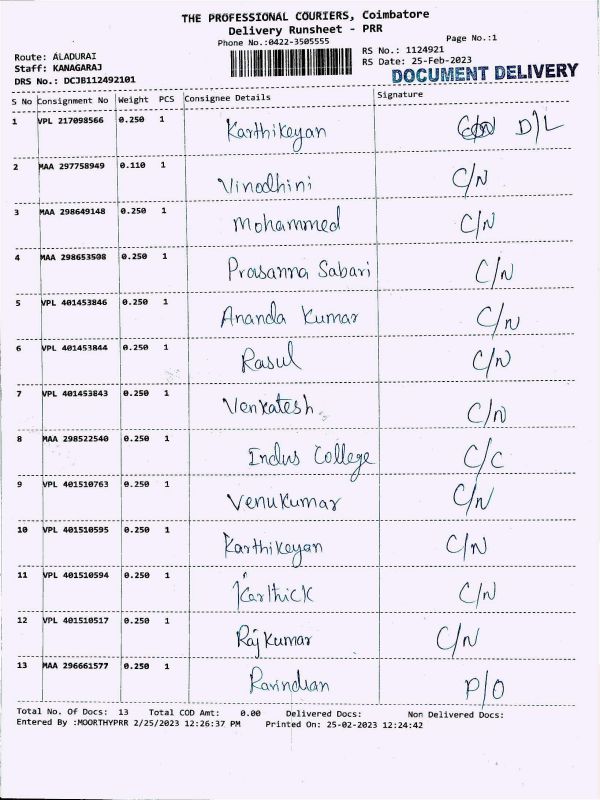 THE PROFESSIONAL COURIERS, Coimbatore
Delivery Runsheet - PRR
Phone No.:0422-3505555
Page No.:1
Route: ALADURAI
RS No.: 1124921
Staff: KANAGARAJ
RS Date: 25-Feb-2023
DRS No.: DCJB112492101
DOCUMENT DELIVERY
S No Consignment No Weight PCS Consignee Details Signature
1 VPL 217098566 0.250 1 Karthikeyan D/L
2 MAA 297758949 0.110 1 Vinodhini C/N
3 MAA 298649148 0.250 1 Mohammed C/N
4 MAA 298653508 0.250 1 Prasanna Sabari C/N
5 VPL 401453846 0.250 1 Ananda Kumar C/N
6 VPL 401453844 0.250 1 Rasul C/N
7 VPL 401453843 0.250 1 Venkatesh C/N
8 MAA 298522540 0.250 1 Indus College C/C
9 VPL 401510763 0.250 1 Venukumar C/N
10 VPL 401510595 0.250 1 Karthikeyan C/N
11 VPL 401510594 0.250 1 Karthick C/N
12 VPL 401510517 0.250 1 Rajkumar C/N
13 MAA 296661577 0.250 1 P/O
Total No. Of Docs: 13 Total COD Amt: 0.00 Delivered Docs: Non Delivered Docs:
Entered By :MOORTHYPRR 2/25/2023 12:26:37 PM Printed On: 25-02-2023 12:24:42